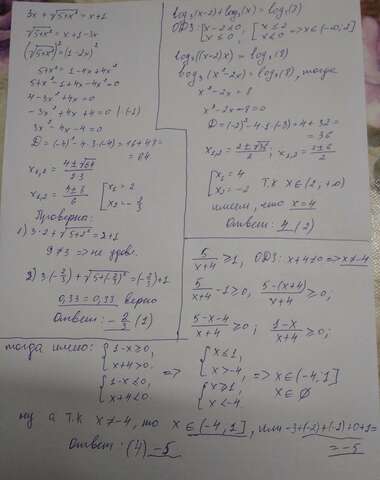 3x + √5+x² = x+1
√5+x² = x+1-3x
(√5+x²)² = (1-2x)²
5+x² = 1-4x+4x²
5+x²-1+4x-4x²=0
4-3x²+4x=0
-3x²+4x+4=0 |·(-1)
3x²-4x-4=0
D=(-4)²-4·3·(-4)=16+48=
=64
x₁,₂ = (4±√64)/(2·3)
x₁,₂ = (4±8)/6 [x₁=2 x₂=-2/3
Проверка:
1) 3·2+√5+2² = 2+1
9≠3 => не удовл.
2) 3(-2/3)+√5+(-2/3)² = (-2/3)+1
0,33=0,33 верно
Ответ: -2/3 (1)
log₃(x-2)+log₃(x)=log₃(8)
ОДЗ:
=> x∈(-∞,2]
log₃((x-2)x)=log₃(8)
log₃(x²-2x)=log₃(8), тогда
x²-2x=8
x²-2x-8=0
D=(-2)²-4·1·(-8)=4+32=
=36
x₁,₂=(2±√36)/2; x₁,₂=(2±6)/2
[x₁=4 x₂=-2 т.к x∈(2,+∞)
имеем, что x=4
Ответ: 4 (2)
5/(x+4) ≥1, ОДЗ: x+4≠0 => x≠-4
5/(x+4) -1≥0, (5-(x+4))/(x+4) ≥0;
(5-x-4)/(x+4) ≥0; (1-x)/(x+4) ≥0;
тогда имеем: {1-x≥0, x+4>0. {1-x≤0, x+4<0. => {x≤1, x>-4. {x≥1, x<-4. => x∈(-4,1] x∈∅
ну а т.к x≠-4, то x∈(-4,1], или -3+(-2)+(-1)+0+1=
=-5
Ответ: (4) -5